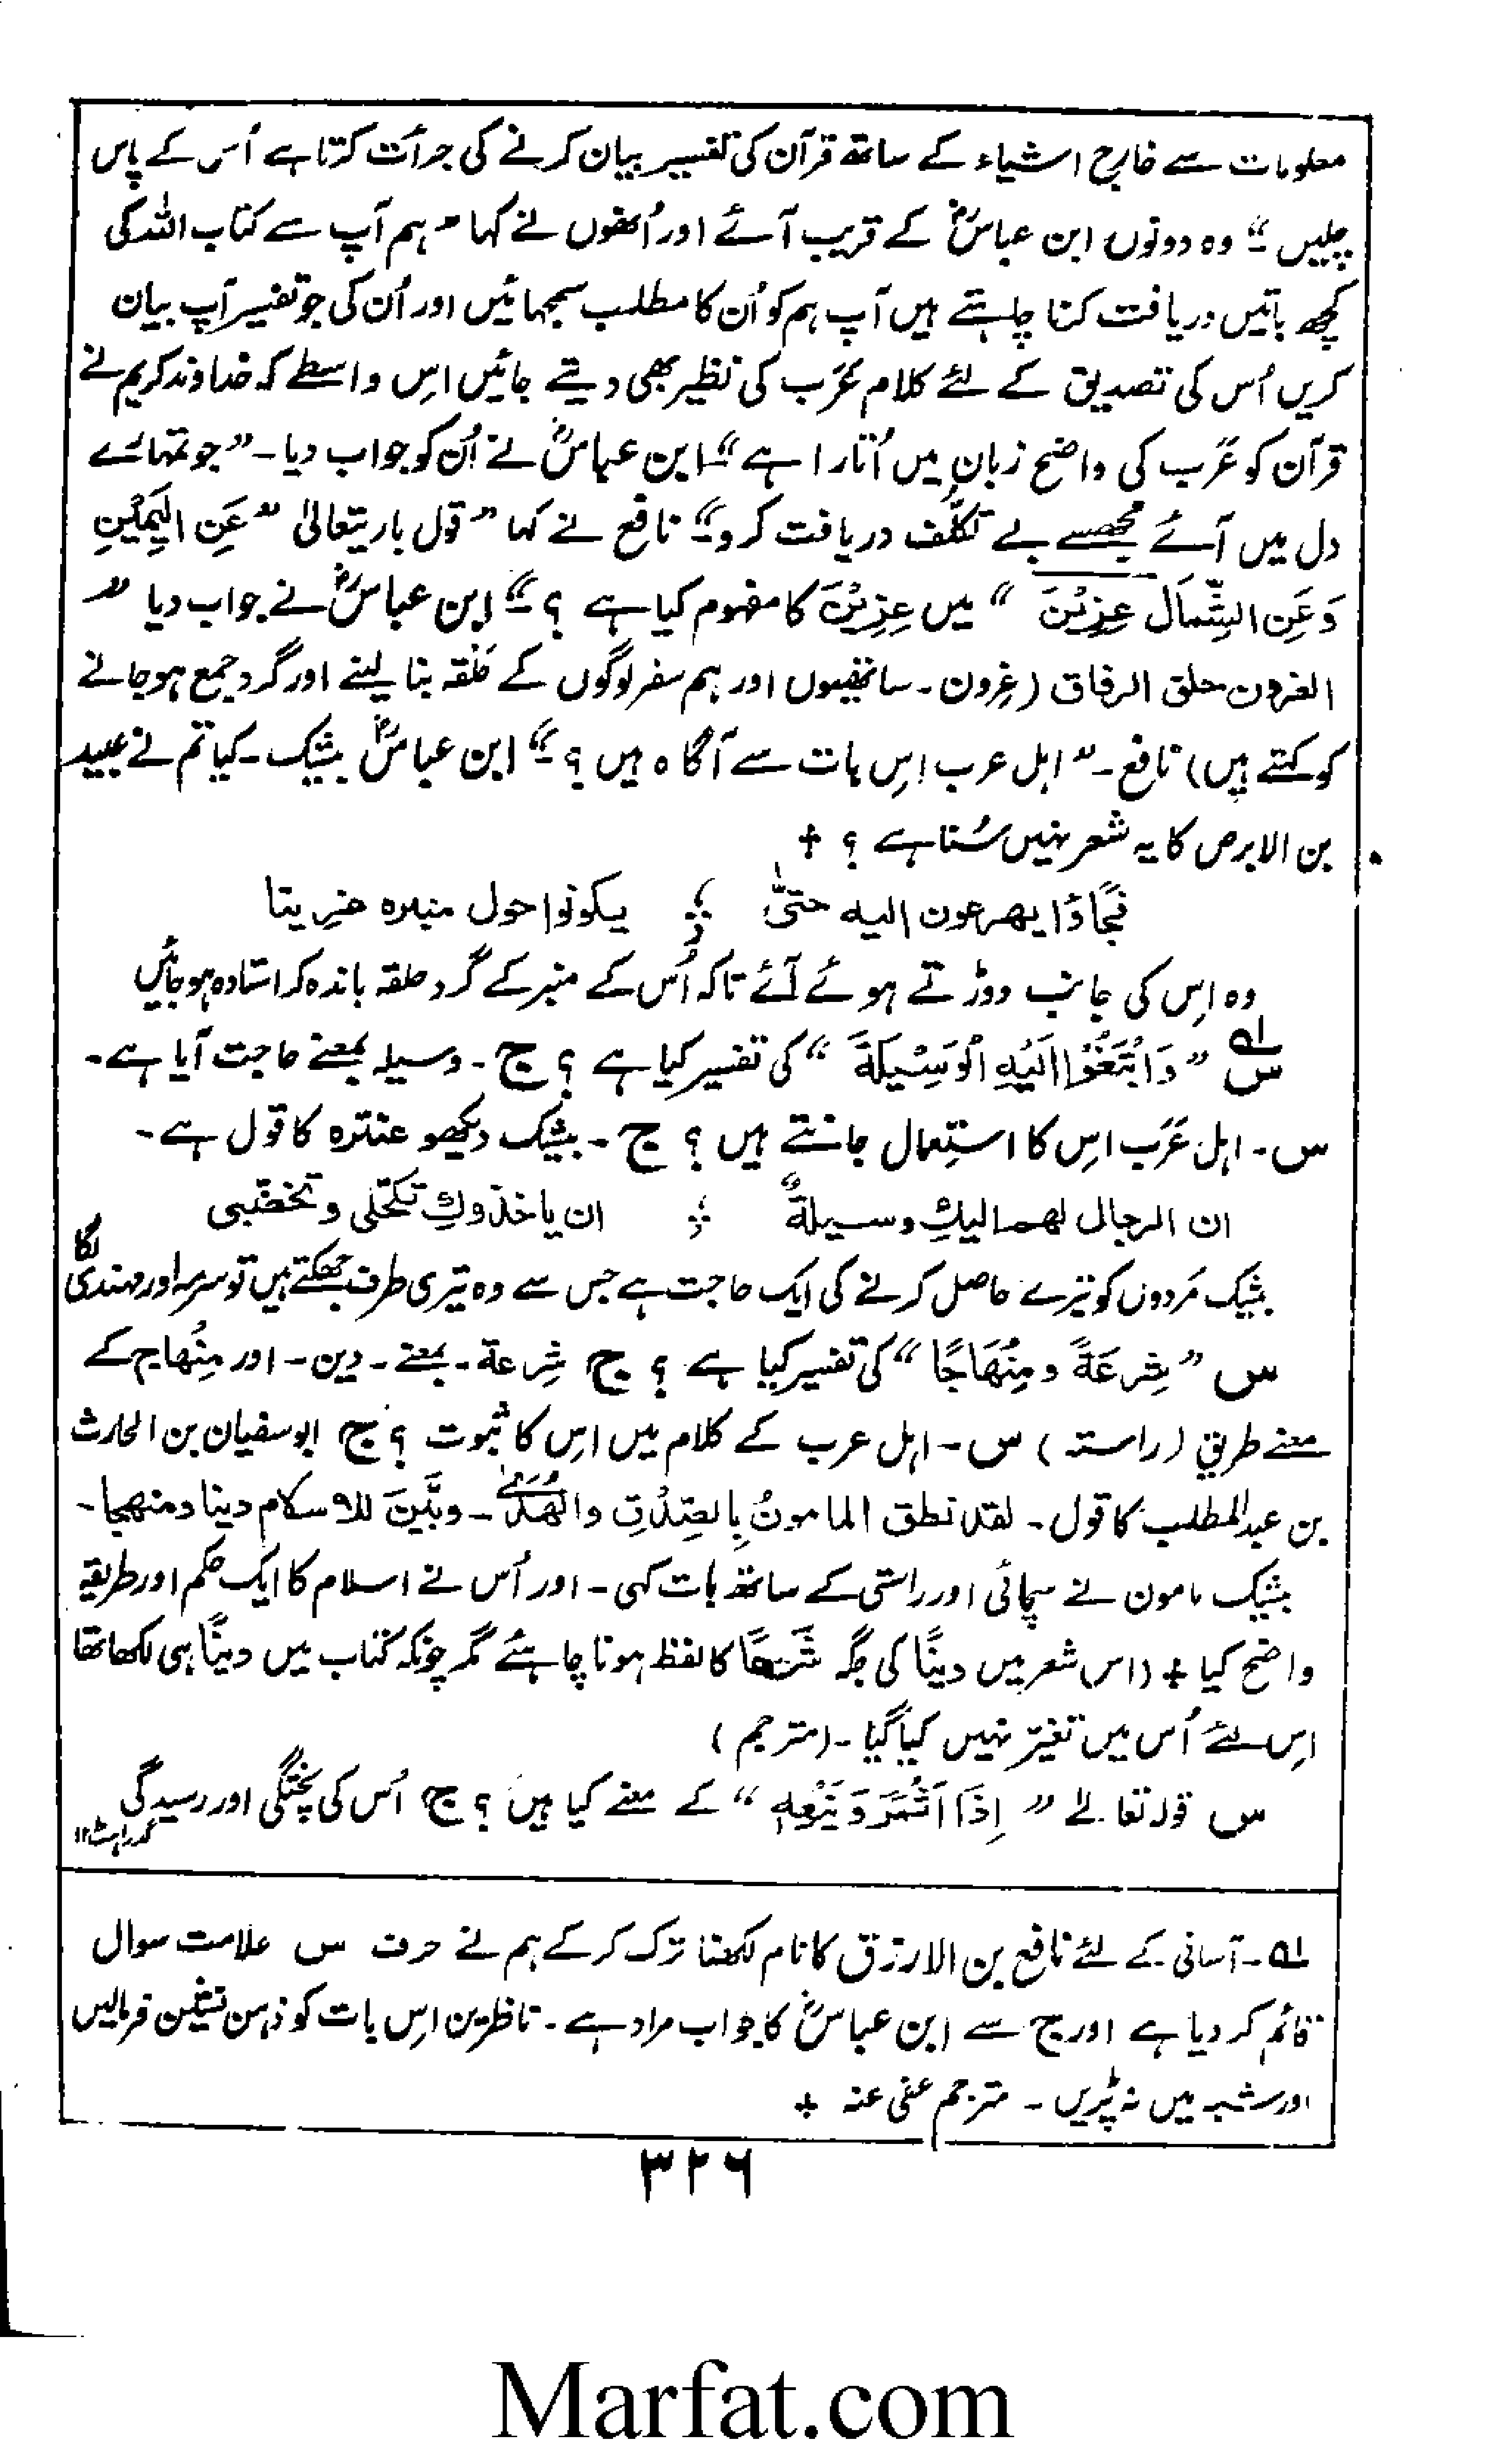 معلومات سے خارج اشیاء کے ساتھ قرآن کی تفسیر بیان کرنے کی جرأت کرتا ہے اُس کے پاس
چلیں“ وہ دونوں ابن عباسؓ کے قریب آئے اور اُنھوں نے کہا ”ہم آپ سے کتاب اللہ کی
کچھ باتیں دریافت کرنا چاہتے ہیں آپ ہم کو اُن کا مطلب سمجھائیں اور اُن کی جو تفسیر آپ بیان
کریں اُس کی تصدیق کے لئے کلام عَرَب کی نظیر بھی دیتے جائیں اِس واسطے کہ خداوند کریم نے
قرآن کو عَرَب کی واضح زبان میں اُتارا ہے“ ابن عباسؓ نے اُن کو جواب دیا۔ ”جو تمہارے
دل میں آئے مجھسے بے تکلّف دریافت کرو“ نافع نے کہا ”قول باریتعالیٰ ”عَنِ الیَمِیْنِ
وَعَنِ الشِّمَالِ عِزِیْنَ“ میں عِزِیْنَ کا مفہوم کیا ہے ؟“ ابن عباسؓ نے جواب دیا ”
العزون حلق الرفاق (عِزون۔ ساتھیوں اور ہم سفر لوگوں کے حَلقہ بنا لینے اور گرد جمع ہو جانے
کو کہتے ہیں) نافع۔ ”اہل عرب اِس بات سے آگاہ ہیں ؟“ ابن عباسؓ بیشک۔ کیا تم نے عبید
بن الابرص کا یہ شعر نہیں سُنا ہے ؟ +
فجَاؤا یھرعون الیہ حتیّٰ ؛ یکونوا حول منبرہ عزینا
وہ اِس کی جانب دوڑتے ہوئے آئے تاکہ اُس کے منبر کے گرد حلقہ باندہ کر استادہ ہو جائیں
س ؎۱ ”وَابْتَغُوْا اِلَیْہِ الْوَسِیْلَةَ“ کی تفسیر کیا ہے ؟ ج۔ وسیلہ بمعنے حاجت آیا ہے۔
س۔ اہل عَرَب اِس کا استِعمال جانتے ہیں ؟ ج۔ بیشک دیکھو عنترہ کا قول ہے۔
ان الرجال لھم الیكِ وسیلةٌ ؛ ان یاخذوكِ تکحّلی وتخضّبی
بیشک مَردوں کو تیرے حاصل کرنے کی ایک حاجت ہے جس سے وہ تیری طرف جھکتے ہیں تو سرمہ اور مہندی لگا
س ”شِرعَةً ومِنْھَاجًا“ کی تفسیر کیا ہے ؟ ج شِرعة۔ بمعنے۔ دین۔ اور مِنْھاج کے
معنے طریق (راستہ) س۔ اہل عرب کے کلام میں اِس کا ثبوت ؟ ج ابو سفیان بن الحارث
بن عبدالمطلب کا قول۔ لقد نطق المامونُ بِالصِّدْقِ والھُدیٰ۔ وبَیَّنَ للاسلام دینا ومنھجا۔
بیشک مامون نے سچائی اور راستی کے ساتھ بات کہی۔ اور اُس نے اسلام کا ایک حکم اور طریقہ
واضح کیا + (اس شعر میں دینًا کی جگہ شَرعًا کا لفظ ہونا چاہئے مگر چونکہ کتاب میں دینًا ہی لکھا تھا
اِس لئے اُس میں تغیّر نہیں کیا گیا۔ (مترجم)
س قولہ تعالےٰ ”اِذَا اَثْمَرَ وَیَنْعِہٖ“ کے معنے کیا ہیں ؟ ج اُس کی پختگی اور رسیدگی
؎۱۔ آسانی کے لئے نافع بن الارزق کا نام لکھنا ترک کر کے ہم نے حرف س علامت سوال
قائم کر دیا ہے اور ج سے ابن عباسؓ کا جواب مراد ہے۔ ناظرین اِس بات کو ذہن نشین فرمالیں
اور شبہ میں نہ پڑیں۔ مترجم عفی عنہ +
۳۲۶
Marfat.com